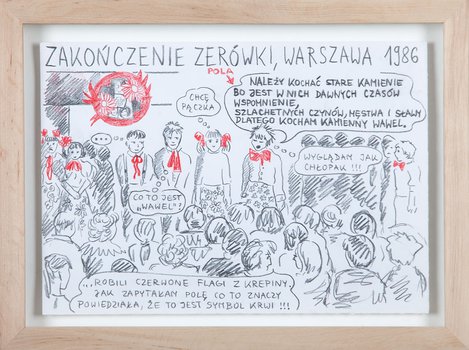 ZAKOŃCZENIE ZERÓWKI, WARSZAWA 1986
POLA
NALEŻY KOCHAĆ STARE KAMIENIE
BO JEST W NICH DAWNYCH CZASÓW
WSPOMNIENIE,
SZLACHETNYCH CZYNÓW, MĘSTWA I SŁAWY
DLATEGO KOCHAM KAMIENNY WAWEL.
CHCĘ
PĄCZKA
...
WYGLĄDAM JAK
CHŁOPAK !!!
CO TO JEST
„WAWEL"?
... ROBILI CZERWONE FLAGI Z KREPINY.
JAK ZAPYTAŁAM POLĘ CO TO ZNACZY
POWIEDZIAŁA, ŻE TO JEST SYMBOL KRWI !!!